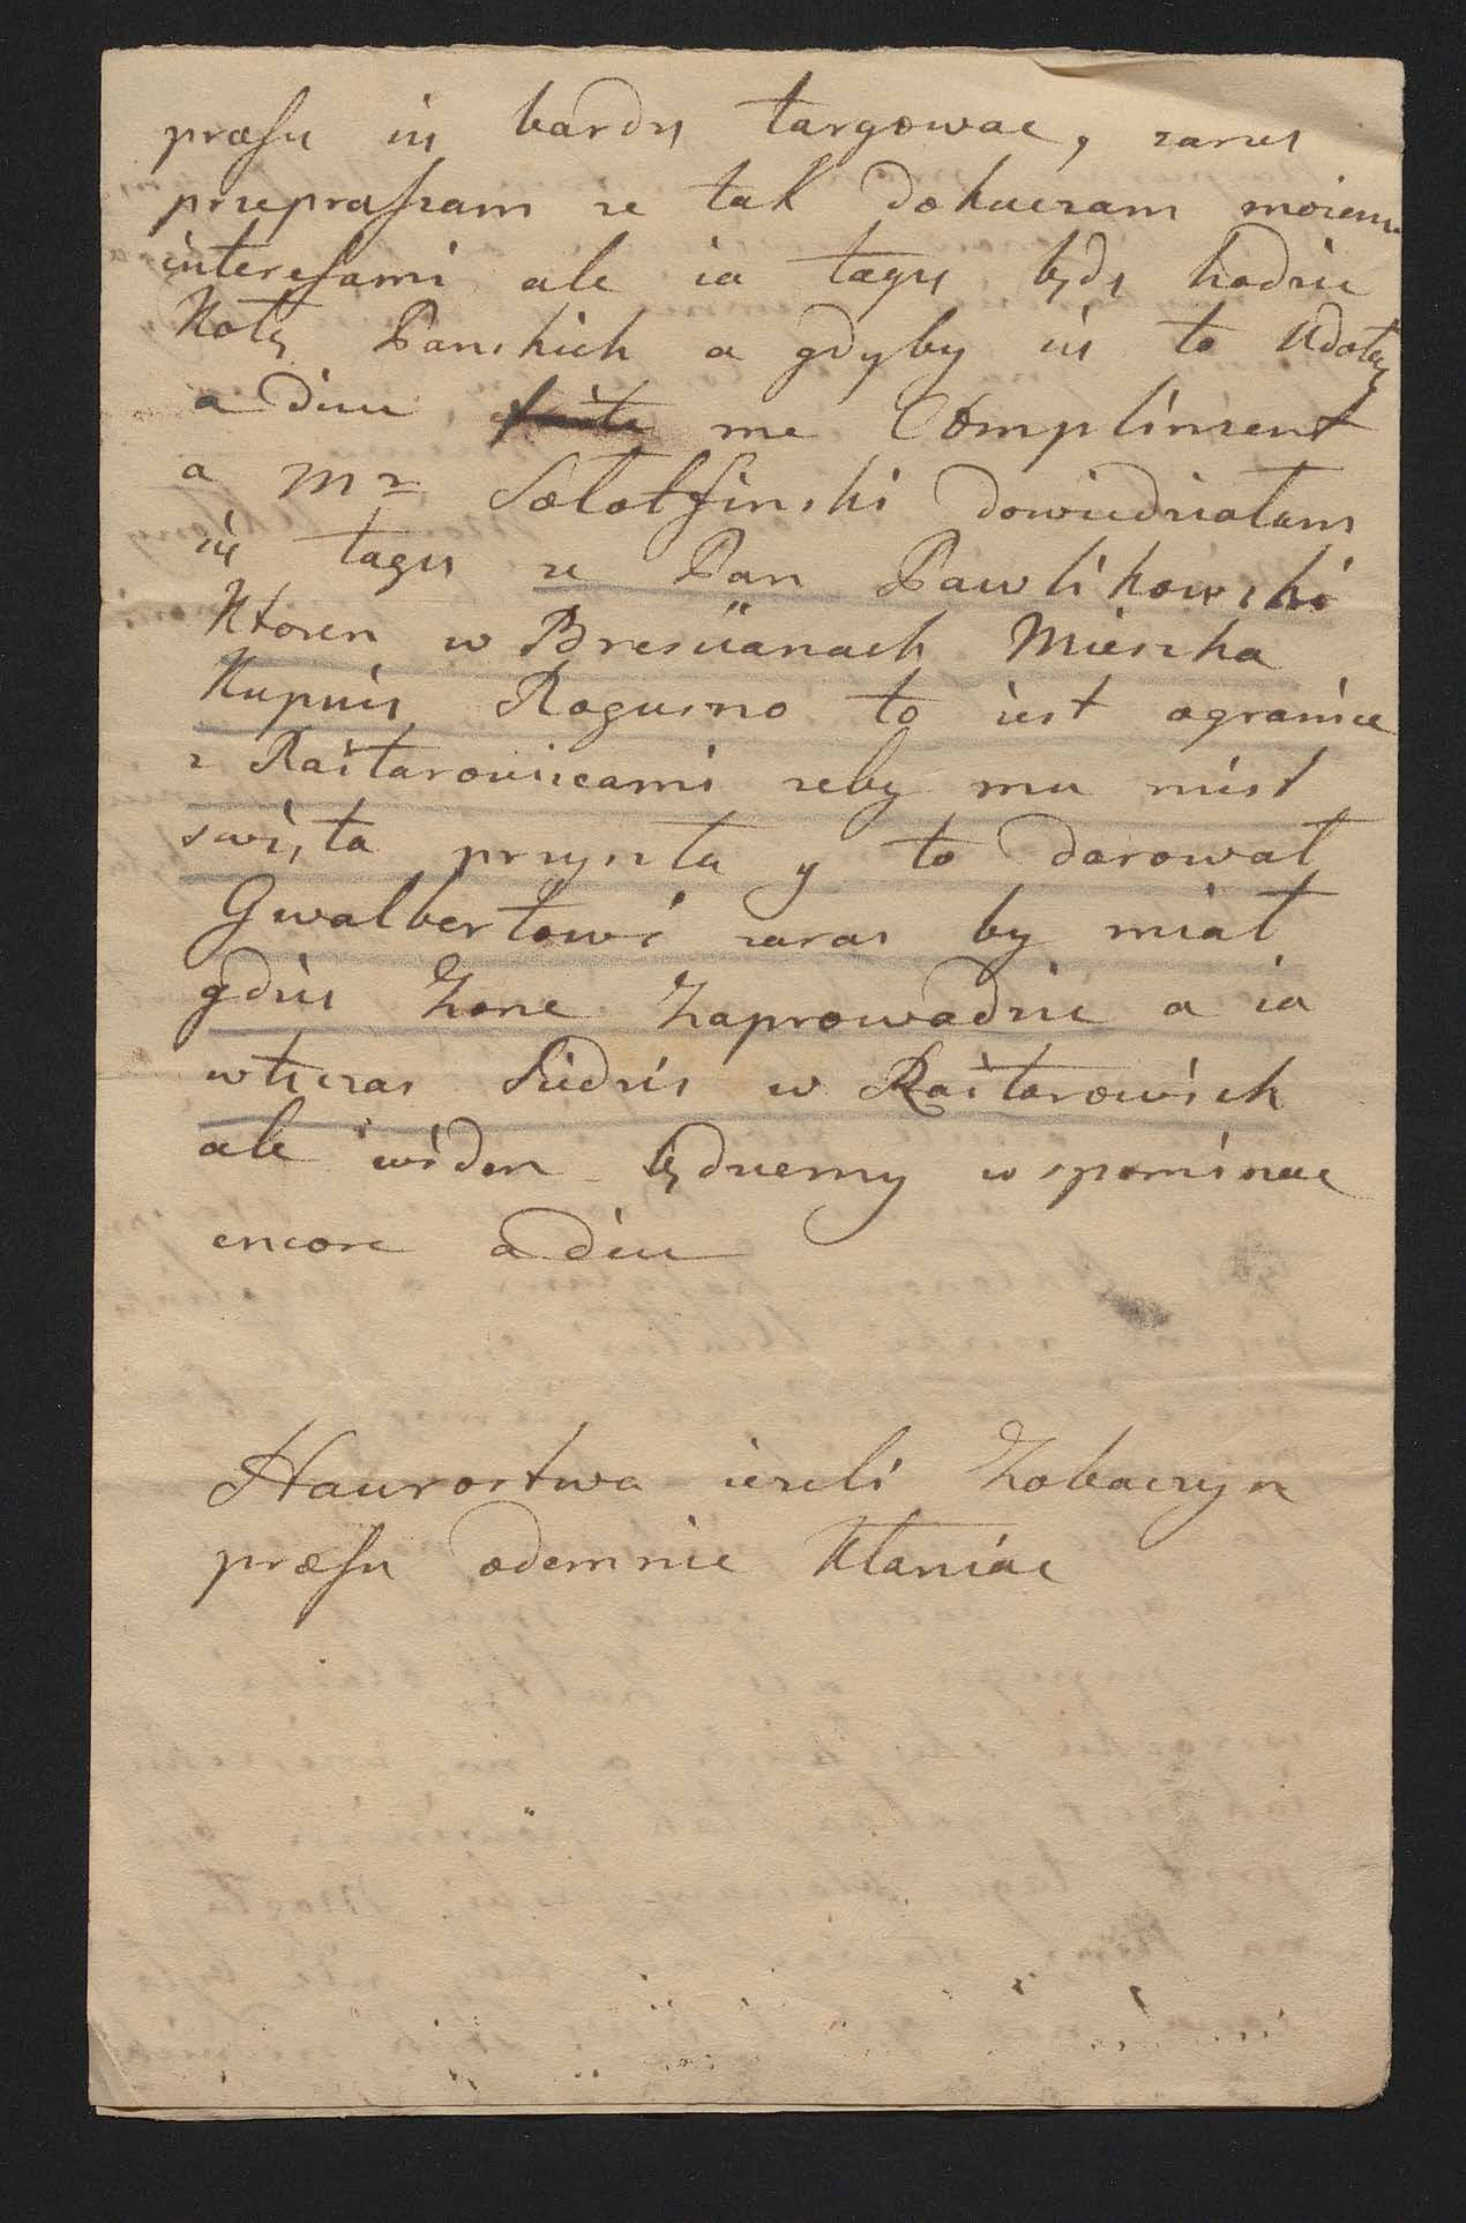 proszu się bardzų targowac, zarazų
przepraszam ze tak dokuczam moiem.
interesami ale ia tagzų będų hodzic
Kolą Panskich a gdyby się to Udołą
a dieu me Compliment
a Mr Sołotfinski dowiedziałam
się tagzų ze Pan Pawlikowski
Ktoren w Bresüanach Mieszka
Kupuię Rogusno to iest ogranicz
z Raitarowicami zeby mu mist
swięta przysztu y to darował
Gwalbertowi zaras by miał
gdzies Zone Zaprowadzic a ia
wtsczas Sidzis w Raitarowich
ale widen będziemy wspominac
encore adieu
Haurostwa iezeli Zobaczyn
proszu odemnie Kłaniac